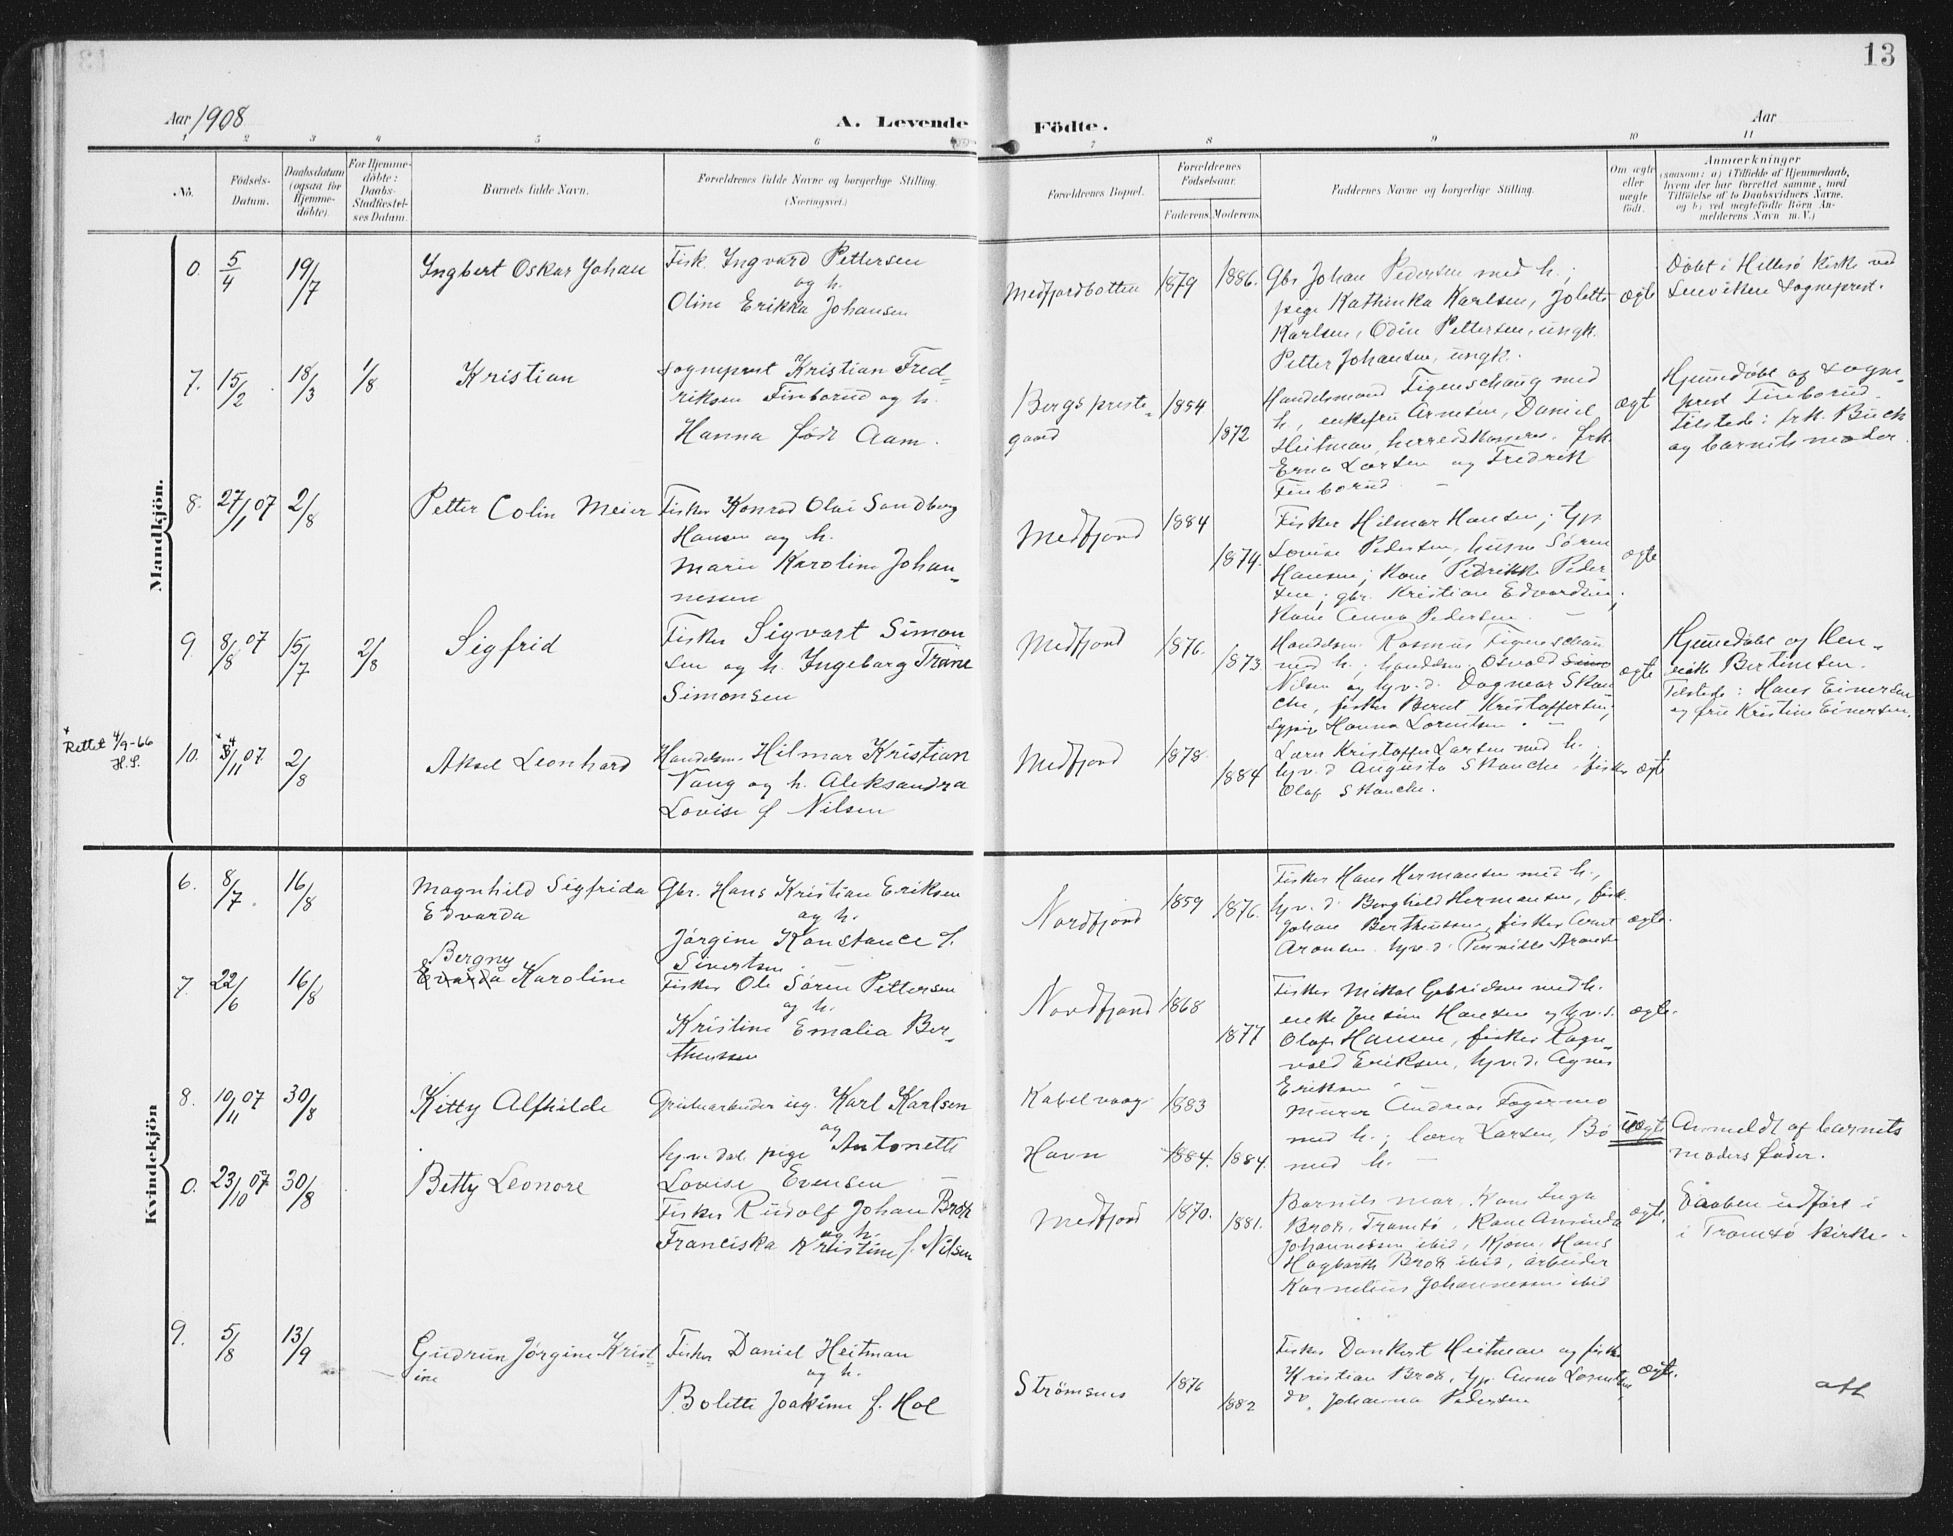 13
Aar 1908
A. Levende Födte.
Aar
1 2 3 4 5 6 7 8 9 10 11
No.
Födsels-
Datum.
Daabsdatum
(ogsaa for
Hjemme-
döbte).
For Hjemme-
döbte:
Daabs-
Stadfæstel-
ses Datum.
Barnets fulde Navn.
Forældrenes fulde Navne og borgerlige Stilling.
(Næringsvei.)
Forældrenes Bopæl.
Forældrenes
Födselsaar.
Faderens. Moderens.
Faddernes Navne og borgerlige Stilling.
Om ægte
eller
uægte
födt.
Anmærkninger
(saasom: a) i Tilfælde af Hjemmedaab,
hvem der har forrettet samme, med
Tilföielse af to Daabsvidners Navne,
og b) ved uægtefödte Börn An-
melderens Navn m. V.)
Mandkjön.
0. 5/4 19/7 Ingbert Oskar Johan
Fisk. Ingvard Pettersen
og h.
Oline Erikka Johansen
Medfjordbotten 1879 1886.
Gbr Johan Pedersen med h.;
pige Kathinka Karlsen, Jolette
Karlsen, Odin Pettersen, ungk.
Petter Johansen, ungk.
ægte
Döbt i Hillesö Kirke ved
Lenvikens Sogneprest.
7. 15/2 18/3 1/8 Kristian
Sogneprest Kristian Fred-
riksen Finborud og h.
Hanna født Aam.
Bergs preste-
gaard
1854 1872
Handelsmand Figenschaug med
h, enkefru Arnesen, Daniel
Heitman, herredskasserer, frk.
Erna Larsen og Fredrik
Finborud.
ægt
Hjemedöbt af Sogne-
prest Finborud.
Tilstede: frk. Buck
og barnets moder
8. 27/1 07 2/8 Petter Colin Meier
Fisker Konrad Olai Sandberg
Hansen og h.
Marie Karoline Johan-
nessen
Medfjord 1884 1874.
Fisker Hilmar Hansen; tjp
Lovise Pedersen, husm Søren
Hansen; kone Pedrikke Peder-
sen; gbr. Kristian Edvardsen;
Kone Anna Pedersen.
ægte
9. 8/8 07 15/7 2/8 Sigfrid
Fisker Sigvart Simon
sen og h. Ingeborg Trane
Simonsen
Medfjord 1876. 1873
Handelsm. Rasmus Figenschau
med h.; handelsm. Osvald
Nilsen og hj.v.d. Dagmar Skan
che, fisker Bernt Kristoffersen;
Hanna Lorentsen.
ægte
Hjemedöbt af Hen-
rik Bertinsen.
Tilstede: Hans Einersen
og fru Kristine Einersen.
* Rettet 4/9-66
H.S.
10. 4/11 07. 2/8 Aksel Leonhard
Handelsm. Hilmar Kristian
Vang og h. Aleksandra
Lovise f Nilsen
Medfjord 1878. 1884
Lærer Kristoffer Larsen med h.
hj.v.d Augusta Skanche, fisker
Olaf Skanche.
ægte
Kvindekjön
6. 8/7. 16/8 Magnhild Sigfrida
Edvarda
Gbr. Hans Kristian Eriksen
og h.
Jørgine Konstance f.
Sivertsen.
Nordfjord 1859 1876.
Fisker Hans Hermansen med h.,
hj.v.d. Borghild Hermansen, fisk.
Johan Berthensen, fisker Arnt
Aronsen, hj.v.d. Pernille Aronsen
ægte.
7. 22/6 16/8 Bergny
Evarda Karoline
Fisker Ole Søren Pettersen
og h.
Kristine Emalia Ber-
thensen
Nordfjord 1868 1877
Fisker Mikal Gabrielsen med h.
enke Jensine Hansen og hj.v.d.
Olaf Hansen, fisker Ragn-
vald Eriksen, hj.v.d. Agnes
Eriksen.
ægte.
8. 10/11 07 30/8 Kitty Alfhilde
Grubearbeider ug. Karl Karlsen
og
hjv. dat. pige Antonette
Lovise Evensen
Kabelvaag 1883
Havn 1884. 1884.
Murer Andreas Fagermo
med h.; lærer Larsen, Bö
med h.
uægte
Anmeldt af barnets
moders fader.
0. 23/10 07 30/8 Betty Leonore
Fisker Rudolf Johan Brox
og h.
Franciska Kristine f. Nilsen
Medfjord 1870. 1881.
Barnets mor. Kone Inga
Brox, Tromsö, Kone Amanda
Johannessen ibid, Kjøm. Hans
Hagbarth Brox ibid, arbeider
Kornelius Johannessen ibid
ægte.
Daaben udført i
i Tromsö kirke.
9. 5/8 13/9 Gudrun Jørgine Krist-
ine
Fisker Daniel Heitman
og h.
Bolette Joakime f. Hol
Strömsnes 1876 1882
Fisker Dankert Heitman og fisker
Kristian Brox, tjp. Anna Lorentsen,
do. Johanna Pedersen
ægte.
att